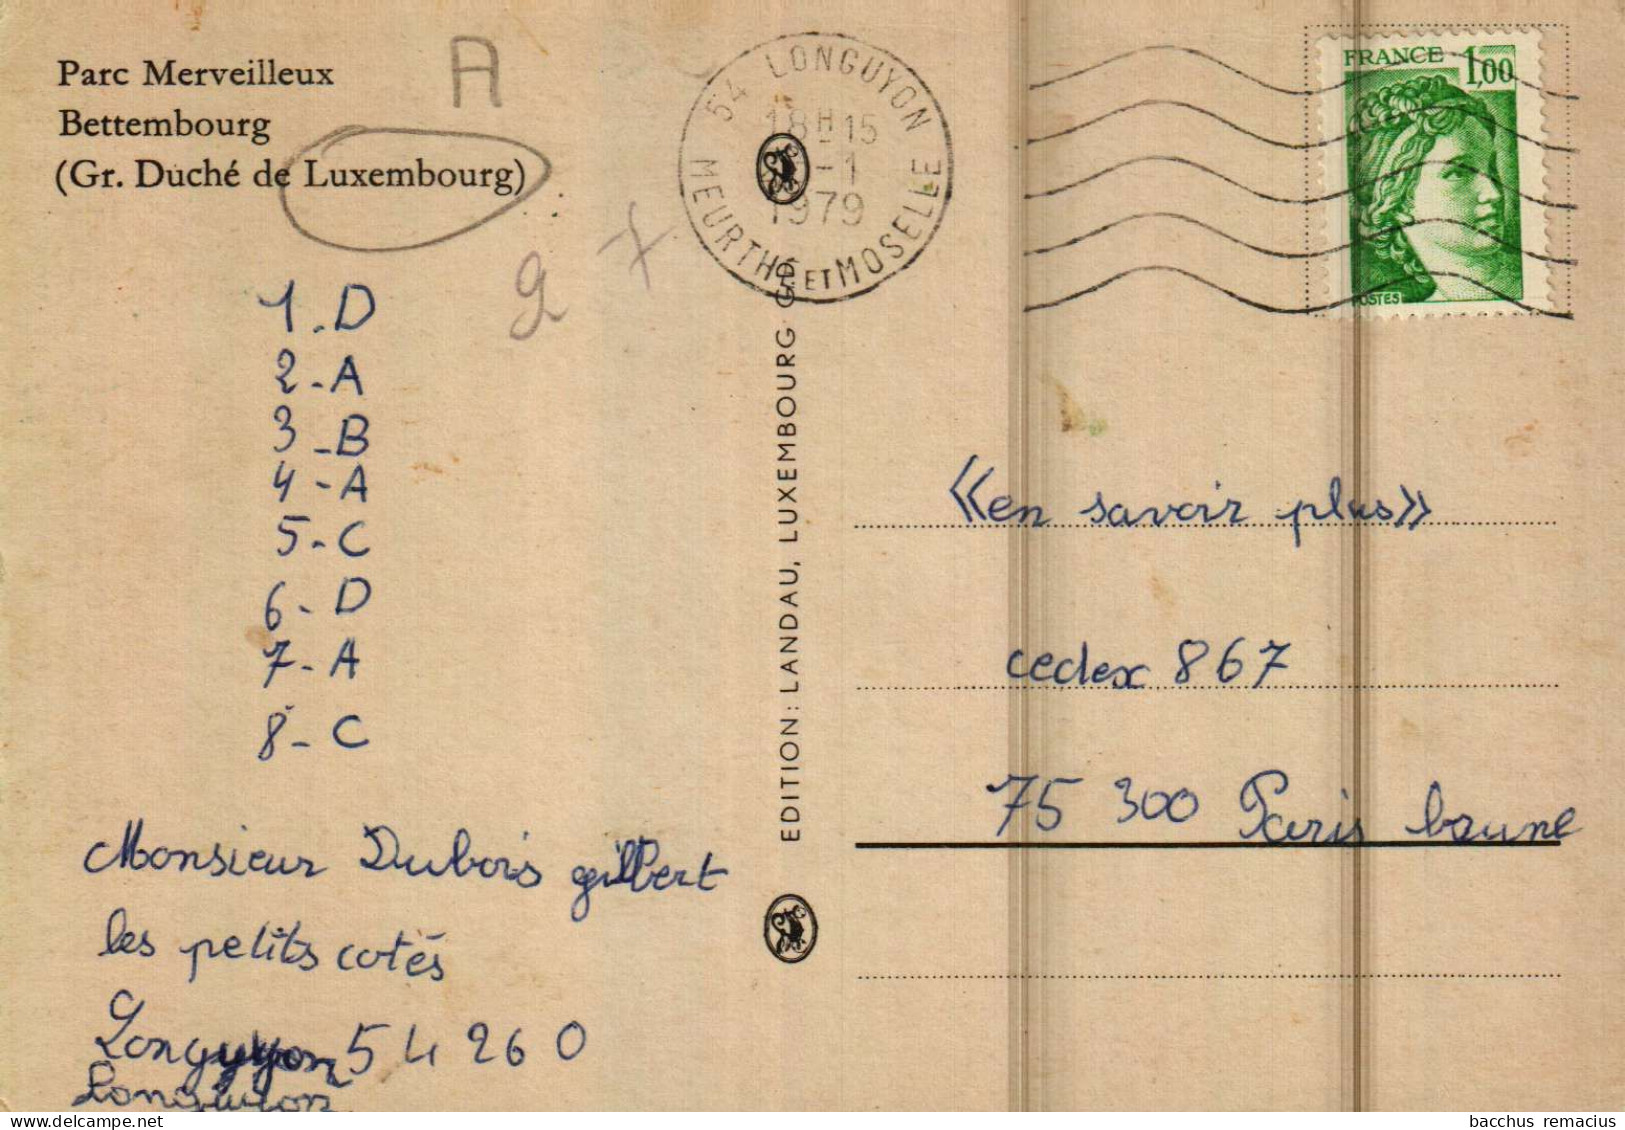 Parc Merveilleux
Bettembourg
(Gr. Duché de Luxembourg)
A
2 7
1. D
2 - A
3 - B
4 - A
5 - C
6 - D
7 - A
8 - C
Monsieur Dubois gilbert
les petits cotés
Longuyon 54 260
Longuyon
EDITION: LANDAU, LUXEMBOURG GD
54 LONGUYON
18H15
-1
1979
MEURTHE ET MOSELLE
FRANCE 1,00
POSTES
«en savoir plus»
cedex 867
75 300 Paris brune
bacchus remacius